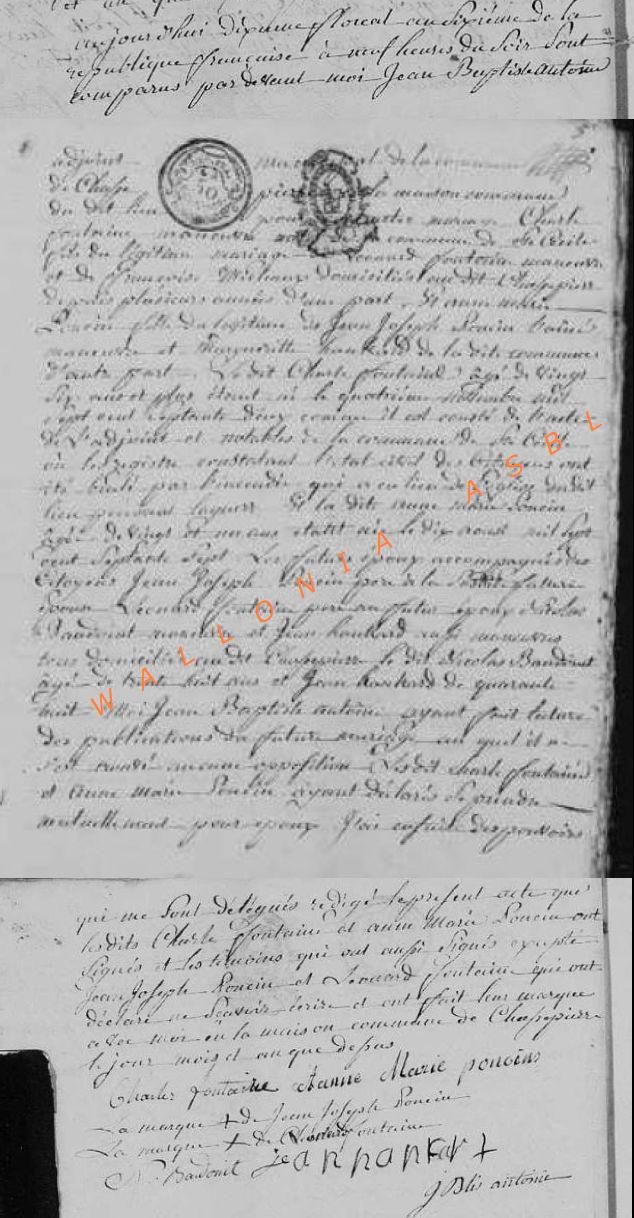 aujourd'hui dixieme floreal an Sixième de la
republique française à neuf heures du Soir Sont
comparus par devant moi Jean Baptiste antoine
adjoint municipal de la commune
de Chasse pierre la maison commune
du dit lieu pour mariage Charle
fontaine manœuvre commune de Ste Cecile
fils du légitime mariage Léonard fontaine manœuvre
et de françoise Michaux domiciliés au dit Chasepierre
depuis plusieurs années d'une part, Et anne marie
Poncin fille du légitime de Jean Joseph Poncin
manœuvre et Margueritte hankard de la dite commune
d'autre part. Le dit Charle fontaine agé de vingt
six ans et plus étant né le quatrième Novembre mil
sept cent septante deux comme il est consté de l'acte
de l'adjoint et notables de la commune de Ste Cecile
où les registre constatant l'etat civil des citoyens ont
été brulé par l'incendie qui a eu lieu de l'Eglise du dit
lieu Et la dite anne marie Poncin
agée de vingt et un ans etant née le dix aoust mil sept
cent Septante Sept. Les future epoux accompagnés des
Citoyens Jean Joseph Poncin pere de la future
Epouse Léonard fontaine pere au futur epoux Nicolas
Baudouit manœuvre et Jean hankard aussi manœuvres
tous domiciliés au dit Chasepierre le dit Nicolas Baudouit
agé de trente huit ans et Jean hankard de quarante
huit Moi Jean Baptiste antoine ayant fait lecture
des publications du future mariage au quel il ne
s'est trouvé aucune opposition Lesdit Charle fontaine
et Anne Marie Poncin ayant déclarés Se prendre
mutuellement pour epoux J'ai ensuite des pouvoirs
qui me Sont délégués redigé le present acte que
lesdits Charle fontaine et anne Marie Poncin ont
Signés et les temoins qui ont aussi Signés excepté
Jean Joseph Poncin et Leonard fontaine qui ont
déclaré ne Scavoir écrire et ont fait leur marque
avec moi en la maison commune de Chasepierre
le jour mois et an que dessus
Charles fontaine Anne Marie poncins
La marque + de Jean Joseph Poncin
La marque + de Léonard fontaine
N. Baudouit jean hankart +
J Btis antoine
WALLONIA ASBL